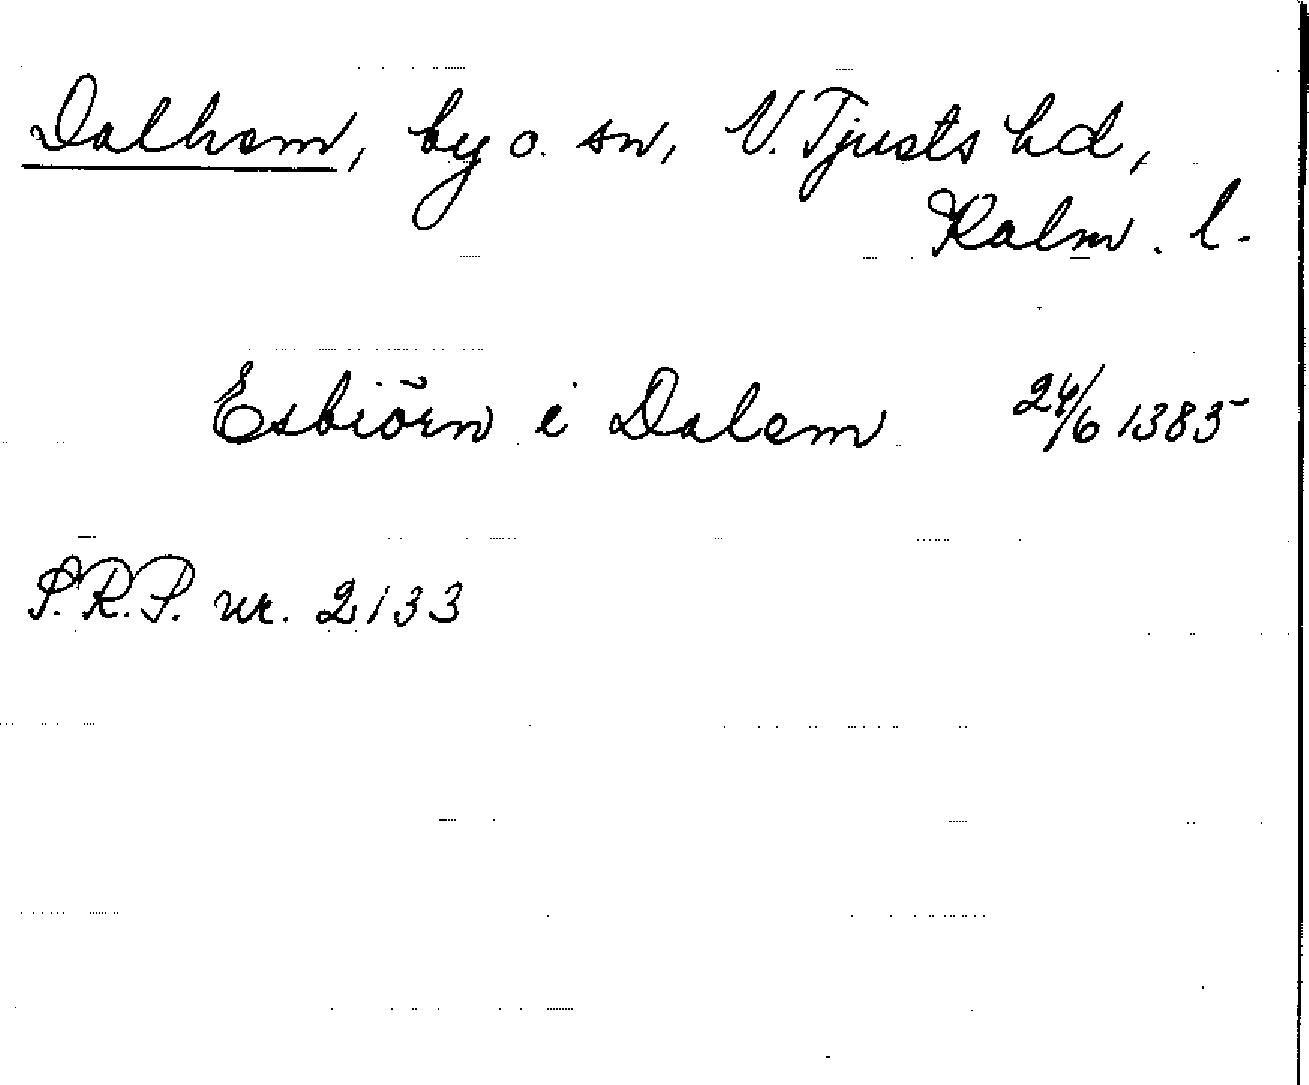 Dalhem, by o. sn, V. Tjusts hd,
Kalm. l.
Esbiörn i Dalem 24/6 1385
S.R.P. nr. 2133